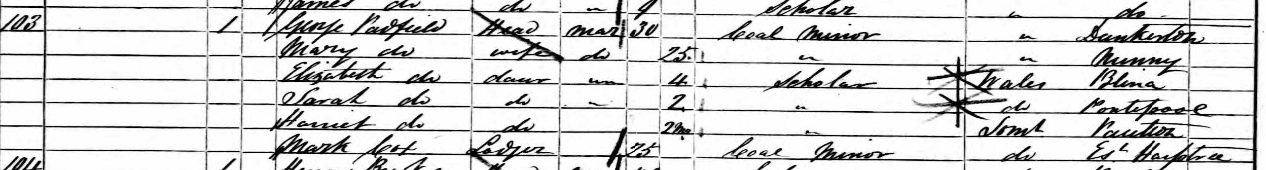 James do do " 9 Scholar " do
103 1 George Padfield Head mar 30 Coal Minor " Dunkerton
Mary do wife do 25 " " Nunny
Elizabeth do daur un 4 Scholar Wales Blina
Sarah do do " 2 " do Pontepool
Harriet do do 2mo " Somt Paulton
Mark Cox Lodger 25 Coal Minor do Est Harptree
104 1